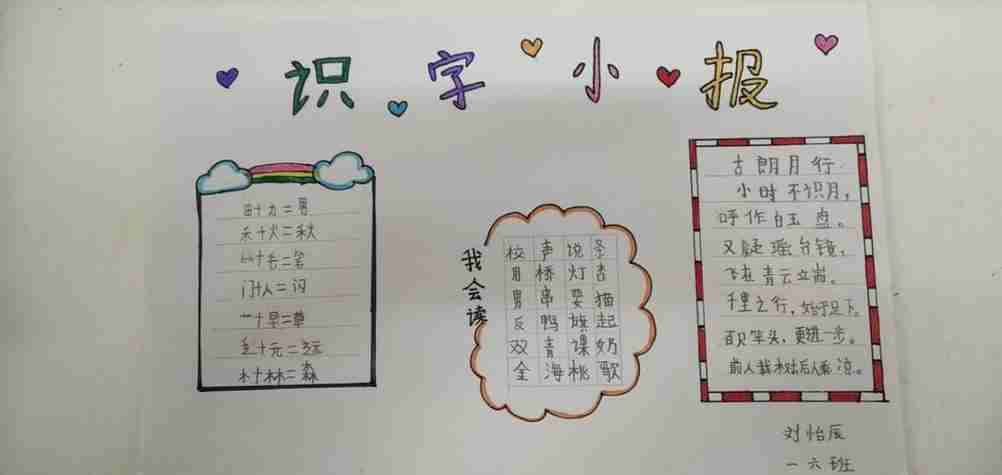 识字小报
田+力=男
禾+火=秋
⺮+毛=笔
门+人=闪
艹+早=草
辶+元=远
木+林=森
我会读
校 声 说 条
月 桥 灯 杏
男 串 要 猫
反 鸭 旗 起
双 青 课 奶
全 海 桃 歌
古朗月行
小时不识月,
呼作白玉盘。
又疑瑶台镜,
飞在青云立端。
千里之行,始于足下。
百尺竿头,更进一步。
前人栽树后人乘凉。
刘怡辰
一六班